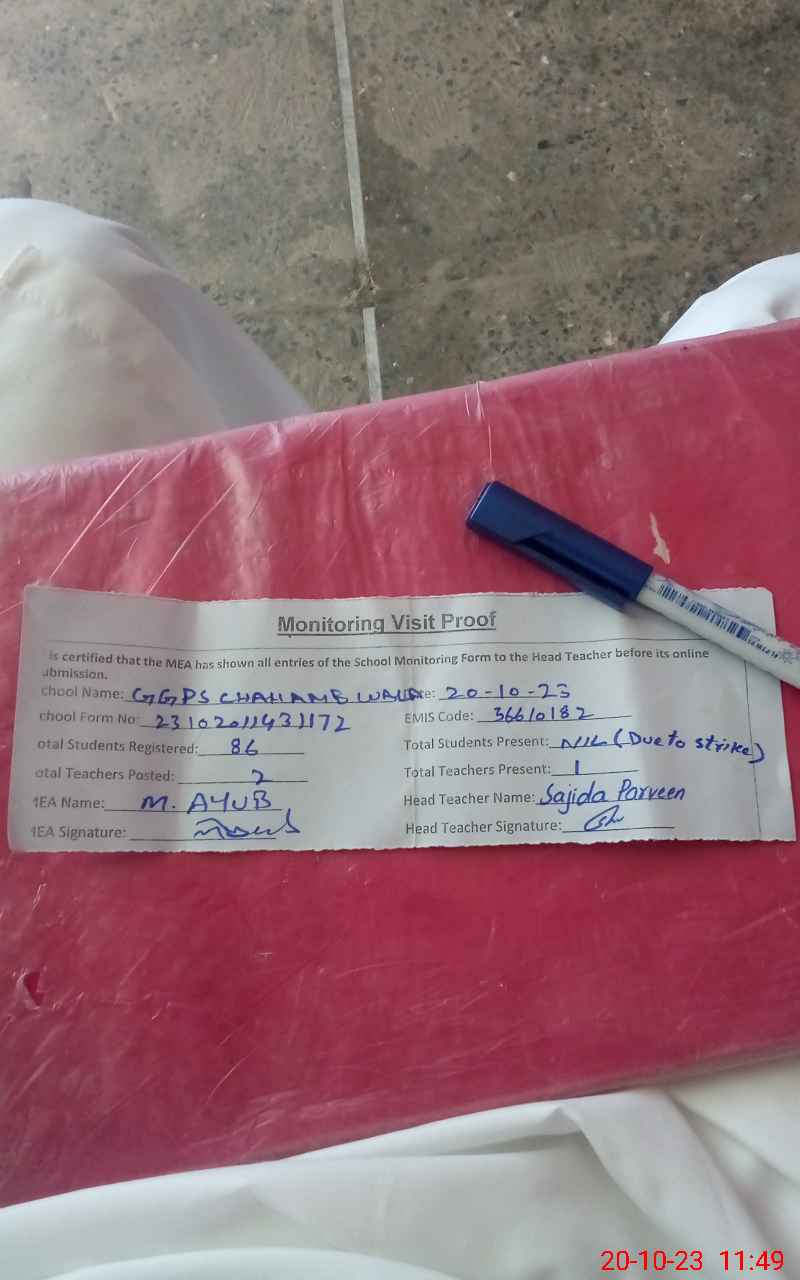 Monitoring Visit Proof
is certified that the MEA has shown all entries of the School Monitoring Form to the Head Teacher before its online
ubmission.
chool Name: GGPS CHAHANB WALA te: 20-10-23
chool Form No: 23102011431172 EMIS Code: 36610182
otal Students Registered: 86 Total Students Present: NIL (Due to strike)
otal Teachers Posted: 2 Total Teachers Present: 1
MEA Name: M. AYUB Head Teacher Name: Sajida Parveen
MEA Signature: Head Teacher Signature:
20-10-23 11:49